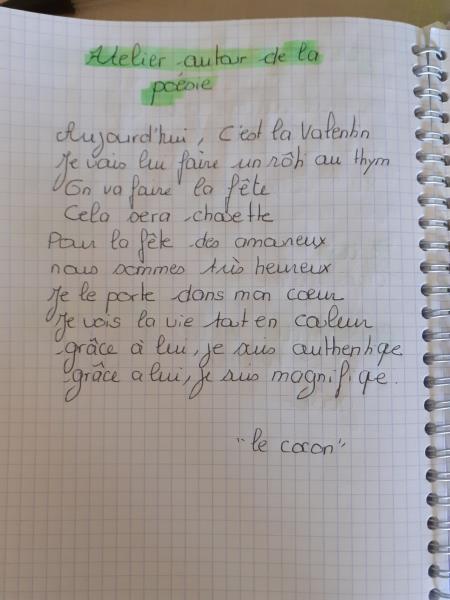 Atelier autour de la
poésie
Aujourd'hui, C'est la Valentin
Je vais lui faire un rôti au thym
On va faire la fête
Cela sera chouette
Pour la fête des amoureux
nous sommes très heureux
Je le porte dans mon cœur
Je vois la vie tout en couleur
grâce à lui, je suis authentique
grâce a lui, je suis magnifique.
"le cocon"